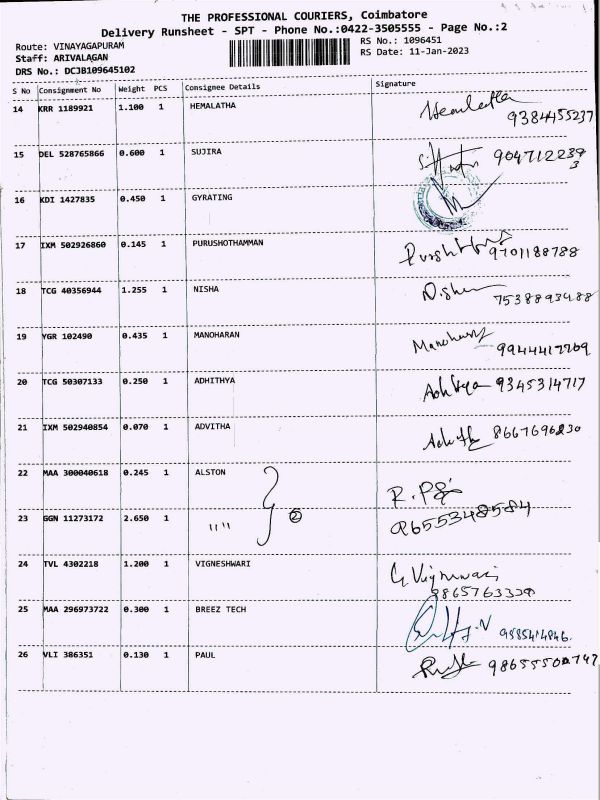 THE PROFESSIONAL COURIERS, Coimbatore
Delivery Runsheet - SPT - Phone No.:0422-3505555 - Page No.:2
Route: VINAYAGAPURAM
Staff: ARIVALAGAN
DRS No.: DCJB109645102
RS No.: 1096451
RS Date: 11-Jan-2023
S No Consignment No Weight PCS Consignee Details Signature
14 KRR 1189921 1.100 1 HEMALATHA Hemalatha
9384455237
15 DEL 528765866 0.600 1 SUJIRA
16 KDI 1427835 0.450 1 GYRATING
17 IXM 502926860 0.145 1 PURUSHOTHAMMAN 9701188788
18 TCG 40356944 1.255 1 NISHA
7538893488
19 YGR 102490 0.435 1 MANOHARAN
20 TCG 50307133 0.250 1 ADHITHYA 9345314717
21 IXM 502940854 0.070 1 ADVITHA
22 MAA 300040618 0.245 1 ALSTON
23 GGN 11273172 2.650 1 "" 2 9655348584
24 TVL 4302218 1.200 1 VIGNESHWARI
25 MAA 296973722 0.300 1 BREEZ TECH
26 VLI 386351 0.130 1 PAUL